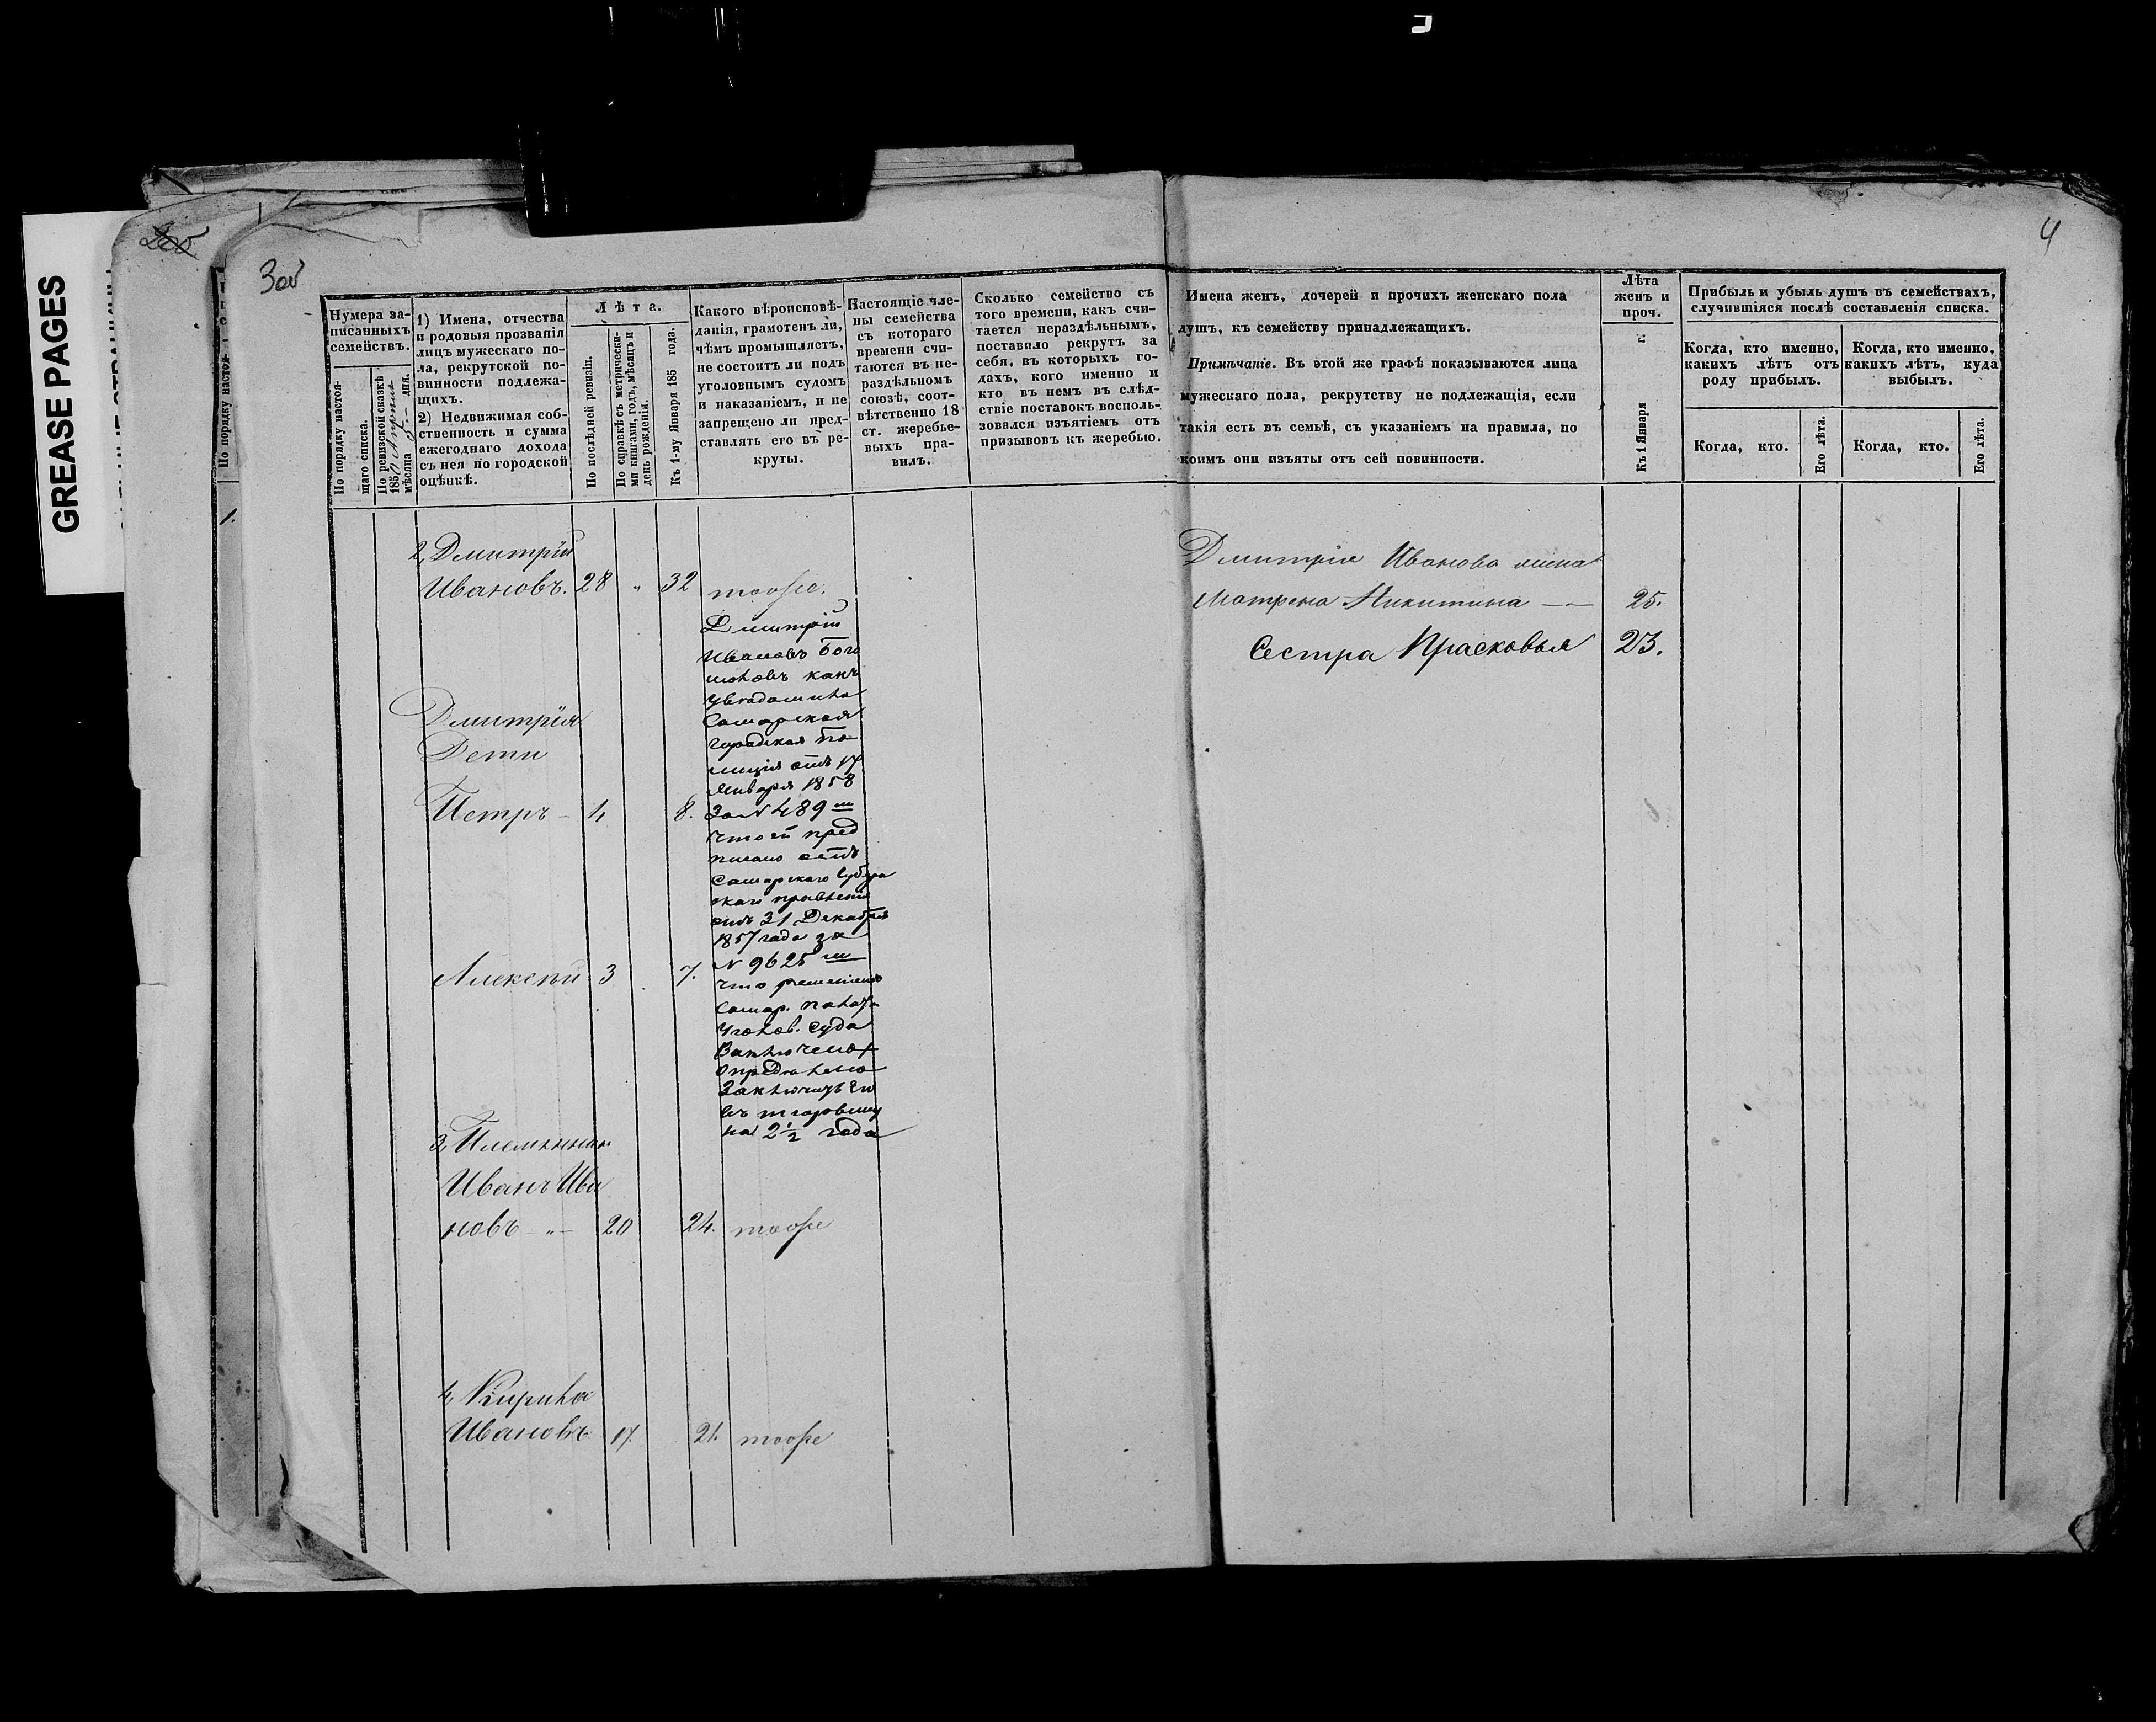 GREASE PAGES
3об
4
Нумера за-
писанныхъ
семействъ.
По порядку настоя-
щаго списка.
По ревизской сказкѣ
185
мѣсяца дня.
1) Имена, отчества
и родовыя прозванія
лицъ мужескаго по-
ла, рекрутской по-
винности подлежа-
щихъ.
2) Недвижимая соб-
ственность и сумма
ежегоднаго дохода
съ нея по городской
оцѣнкѣ.
Лѣта.
По послѣдней ревизіи.
По справкѣ съ метрически-
ми книгами, годъ, мѣсяцъ и
день рожденія.
Къ 1-му Января 185 года.
Какого вѣроисповѣ-
данія, грамотенъ ли,
чѣмъ промышляетъ,
не состоитъ ли подъ
уголовнымъ судомъ
и наказаніемъ, и не
запрещено ли пред-
ставлять его въ ре-
круты.
Настоящіе чле-
ны семейства
съ котораго
времени счи-
таются въ не-
раздѣльномъ
союзѣ, соот-
вѣтственно 18
ст. жеребье-
выхъ пра-
вилъ.
Сколько семейство съ
того времени, какъ счи-
тается нераздѣльнымъ,
поставило рекрутъ за
себя, въ которыхъ го-
дахъ, кого именно и
кто въ немъ въ слѣд-
ствіе поставокъ восполь-
зовался изъятіемъ отъ
призывовъ къ жеребью.
Имена женъ, дочерей и прочихъ женскаго пола
душъ, къ семейству принадлежащихъ.
Примѣчаніе. Въ этой же графѣ показываются лица
мужескаго пола, рекрутству не подлежащія, если
такія есть въ семьѣ, съ указаніемъ на правила, по
коимъ они изъяты отъ сей повинности.
Лѣта
женъ и
проч.
Къ 1 Января г.
Прибыль и убыль душъ въ семействахъ,
случившіяся послѣ составленія списка.
Когда, кто именно,
какихъ лѣтъ отъ
роду прибылъ.
Когда, кто именно,
какихъ лѣтъ, куда
выбылъ.
Когда, кто.
Его лѣта.
Когда, кто.
Его лѣта.
2, Дмитрій
Ивановъ. 28 " 32 тоже.
Дмитрій
Ивановъ
какъ
Самарская
городская По
лиція отъ 17
Января 1858
За № 489
что ей пред
писано отъ
Самарскаго Губерн
скаго правленія
отъ 31 Декабря
1857 года за
№ 9625
что решеніемъ
Самар. Палаты
Уголов. Суда
Заключить его
на 2 ½ года
Дмитрія
Дети
Петръ - 4 8.
Алексѣй 3 7.
3, Племянник
Иванъ Ива
новъ - " - 20 24. тоже
4, Кирила
Ивановъ 17. 21. тоже
Дмитрія Иванова жена
Матрена Никитина — 25.
Сестра Прасковья 23.